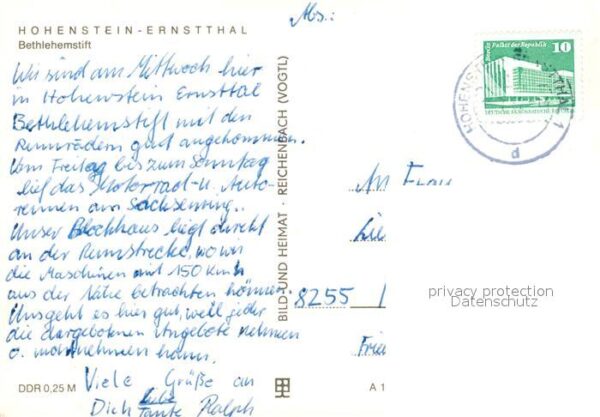 HOHENSTEIN-ERNSTTHAL
Bethlehemstift
Abs.:
Wir sind am Mittwoch hier
in Hohenstein Ernsttal
Bethlehemstift mit den
Rennrädern gut angekommen.
Vom Freitag bis zum Sonntag
lief das Motorrad- u. Auto-
rennen am Sachsenring.
Unser Blockhaus liegt direkt
an der Rennstrecke, wo wir
die Maschinen mit 150 km/h
aus der Nähe betrachten können.
Uns geht es hier gut, weil jeder
die dargebotenen Angebote nehmen
o. mitnehmen kann.
Viele Grüße an
Dich liebe Tante Ralph
DDR 0,25 M
BILD UND HEIMAT · REICHENBACH (VOGTL)
A 1
Berlin Palast der Republik
10
DEUTSCHE DEMOKRATISCHE REPUBLIK
HOHENSTEIN-ERNSTTHAL 1
d
An Frau
8255
privacy protection
Datenschutz